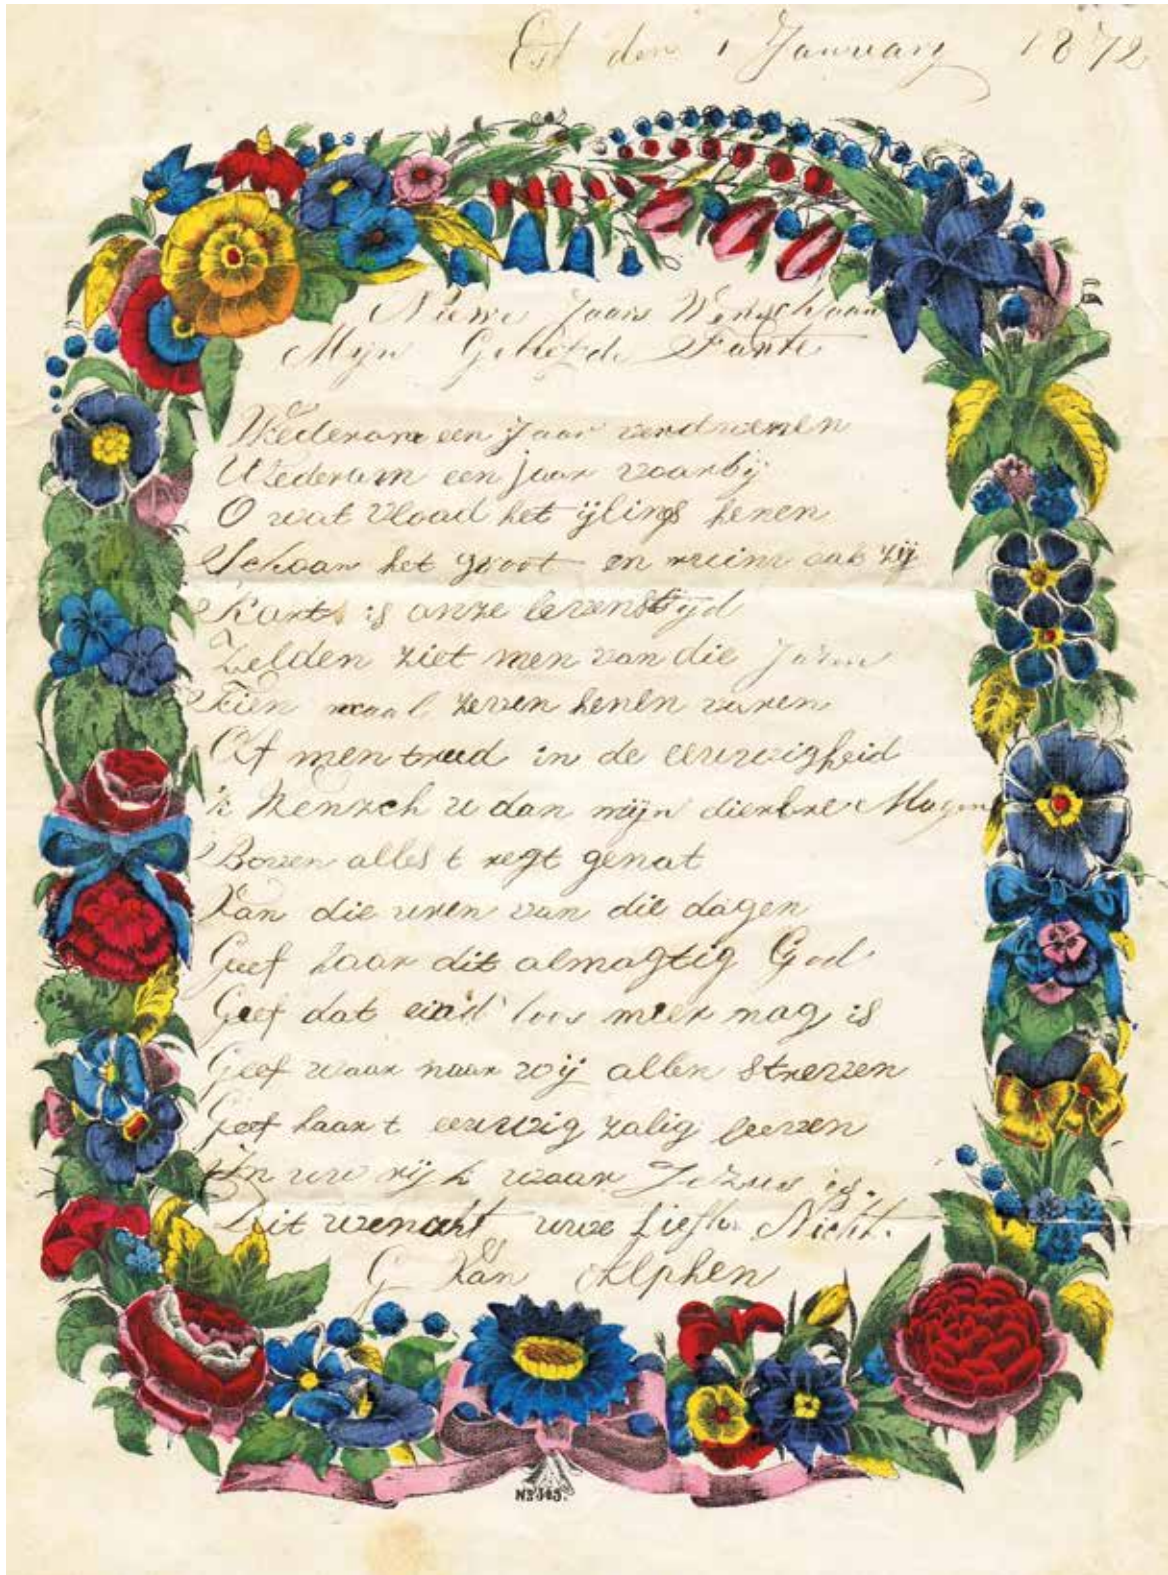 Est den 1 January 1872
Nieuw Jaars Wensch aan
Mijn Geliefde Tante
Wederom een Jaar verdwenen
Wederum een jaar voorbij
O wat vlood het ijlings henen
Schoon het groot en ruim ook zij
Kort is onze levenstijd
Zelden ziet men van die Jaren
Tien maal zeven henen varen
Of men treed in de eeuwigheid
'k Wensch u dan mijn dierbre Magen
Boven alles t regt genot
Van die uren van die dagen
Geef haar dit almagtig God
Geef dat eind loos meer nog is
Geef waar naar wij allen streven
Geef haar t eeuwig zalig leeven
In uw rijk waar Jezus is.
Dit wenscht uwe Liefh. Nicht.
G Van Alphen
No 565.